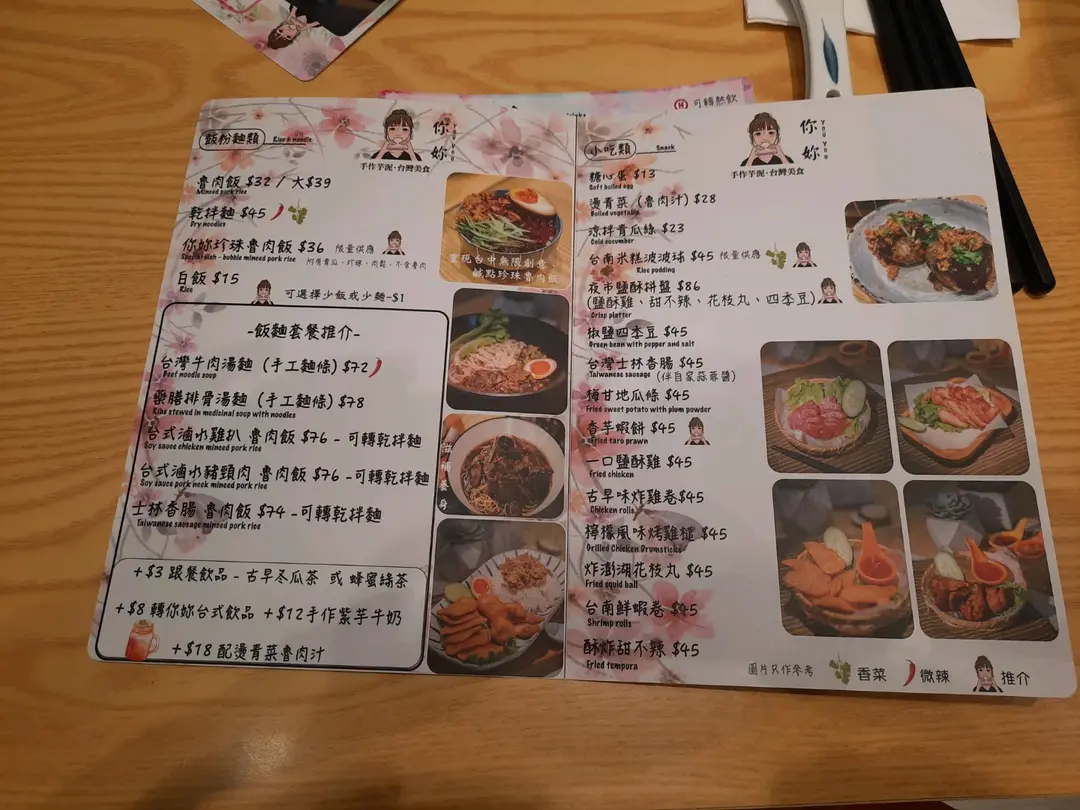 Ⓗ 可轉熱飲
飯粉麵類 Rice & noodle
你妳 you you
手作芋泥·台灣美食
魯肉飯 $32 / 大$39
Minced pork rice
乾拌麵 $45
Dry noodles
你妳珍珠魯肉飯 $36 限量供應
Special dish - bubble minced pork rice
附有青瓜、珍珠、肉鬆、不含魯肉
白飯 $15
Rice
可選擇少飯或少麵-$1
重現台中無限創意
鹹點珍珠魯肉飯
-飯麵套餐推介-
台灣牛肉湯麵 (手工麵條) $72
Beef noodle soup
藥膳排骨湯麵 (手工麵條) $78
Ribs stewed in medicinal soup with noodles
台式滷水雞扒 魯肉飯 $76 - 可轉乾拌麵
Soy sauce chicken minced pork rice
台式滷水豬頸肉 魯肉飯 $76 - 可轉乾拌麵
Soy sauce pork neck minced pork rice
士林香腸 魯肉飯 $74 - 可轉乾拌麵
Taiwanese sausage minced pork rice
+$3 跟餐飲品 - 古早冬瓜茶 或 蜂蜜綠茶
+$8 轉你妳台式飲品 +$12手作紫芋牛奶
+$18 配燙青菜魯肉汁
小吃類 Snack
你妳 you you
手作芋泥·台灣美食
糖心蛋 $13
Soft boiled egg
燙青菜 (魯肉汁) $28
Boiled vegetable
涼拌青瓜絲 $23
Cold cucumber
台南米糕波波球 $45 限量供應
Rice pudding
夜市鹽酥拼盤 $86
(鹽酥雞、甜不辣、花枝丸、四季豆)
Crisp platter
椒鹽四季豆 $45
Green bean with pepper and salt
台灣士林香腸 $45
Taiwanese sausage (伴自家蒜蓉醬)
梅甘地瓜條 $45
Fried sweet potato with plum powder
香芋蝦餅 $45
Fried taro prawn
一口鹽酥雞 $45
Fried chicken
古早味炸雞卷$45
Chicken rolls
檸檬風味烤雞槌 $45
Grilled Chicken Drumsticks
炸澎湖花枝丸 $45
Fried squid ball
台南鮮蝦卷 $45
Shrimp rolls
酥炸甜不辣 $45
Fried tempura
圖片只作參考 香菜 微辣 推介